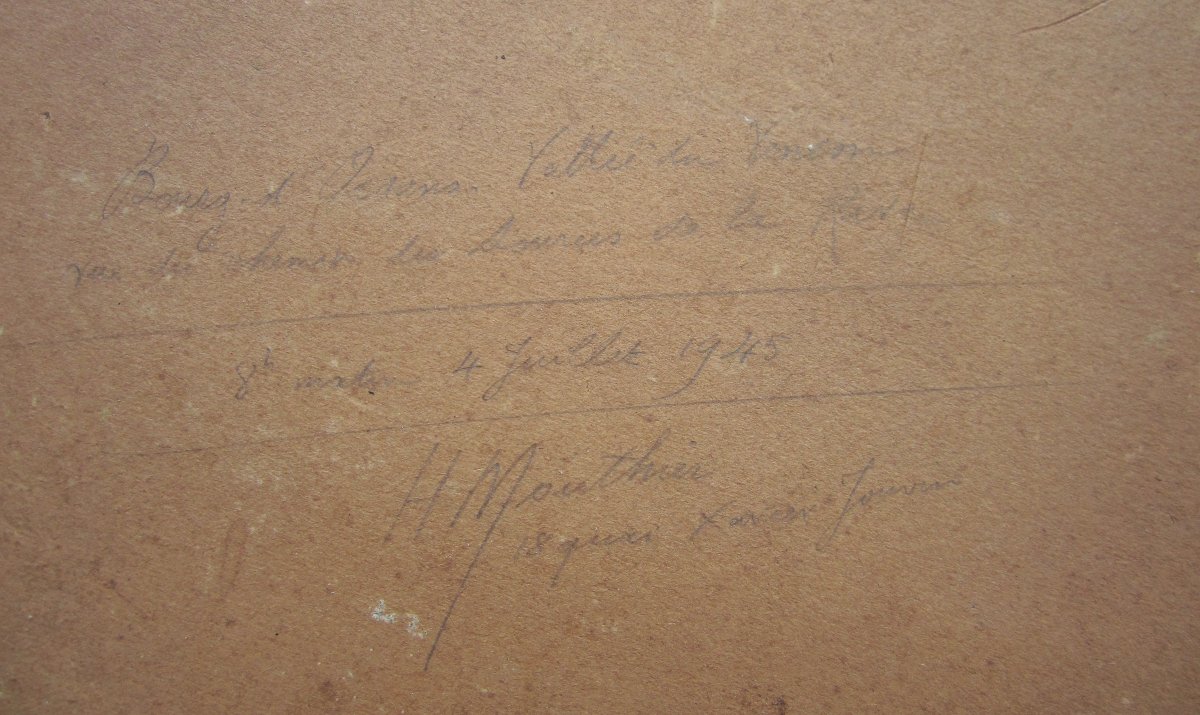 Bourg-d'Oisans. Vallée du Vénéon
vue du chemin des Sources de la Rive
8h matin 4 Juillet 1945
H Mouthier
18 quai Xavier Jouvin